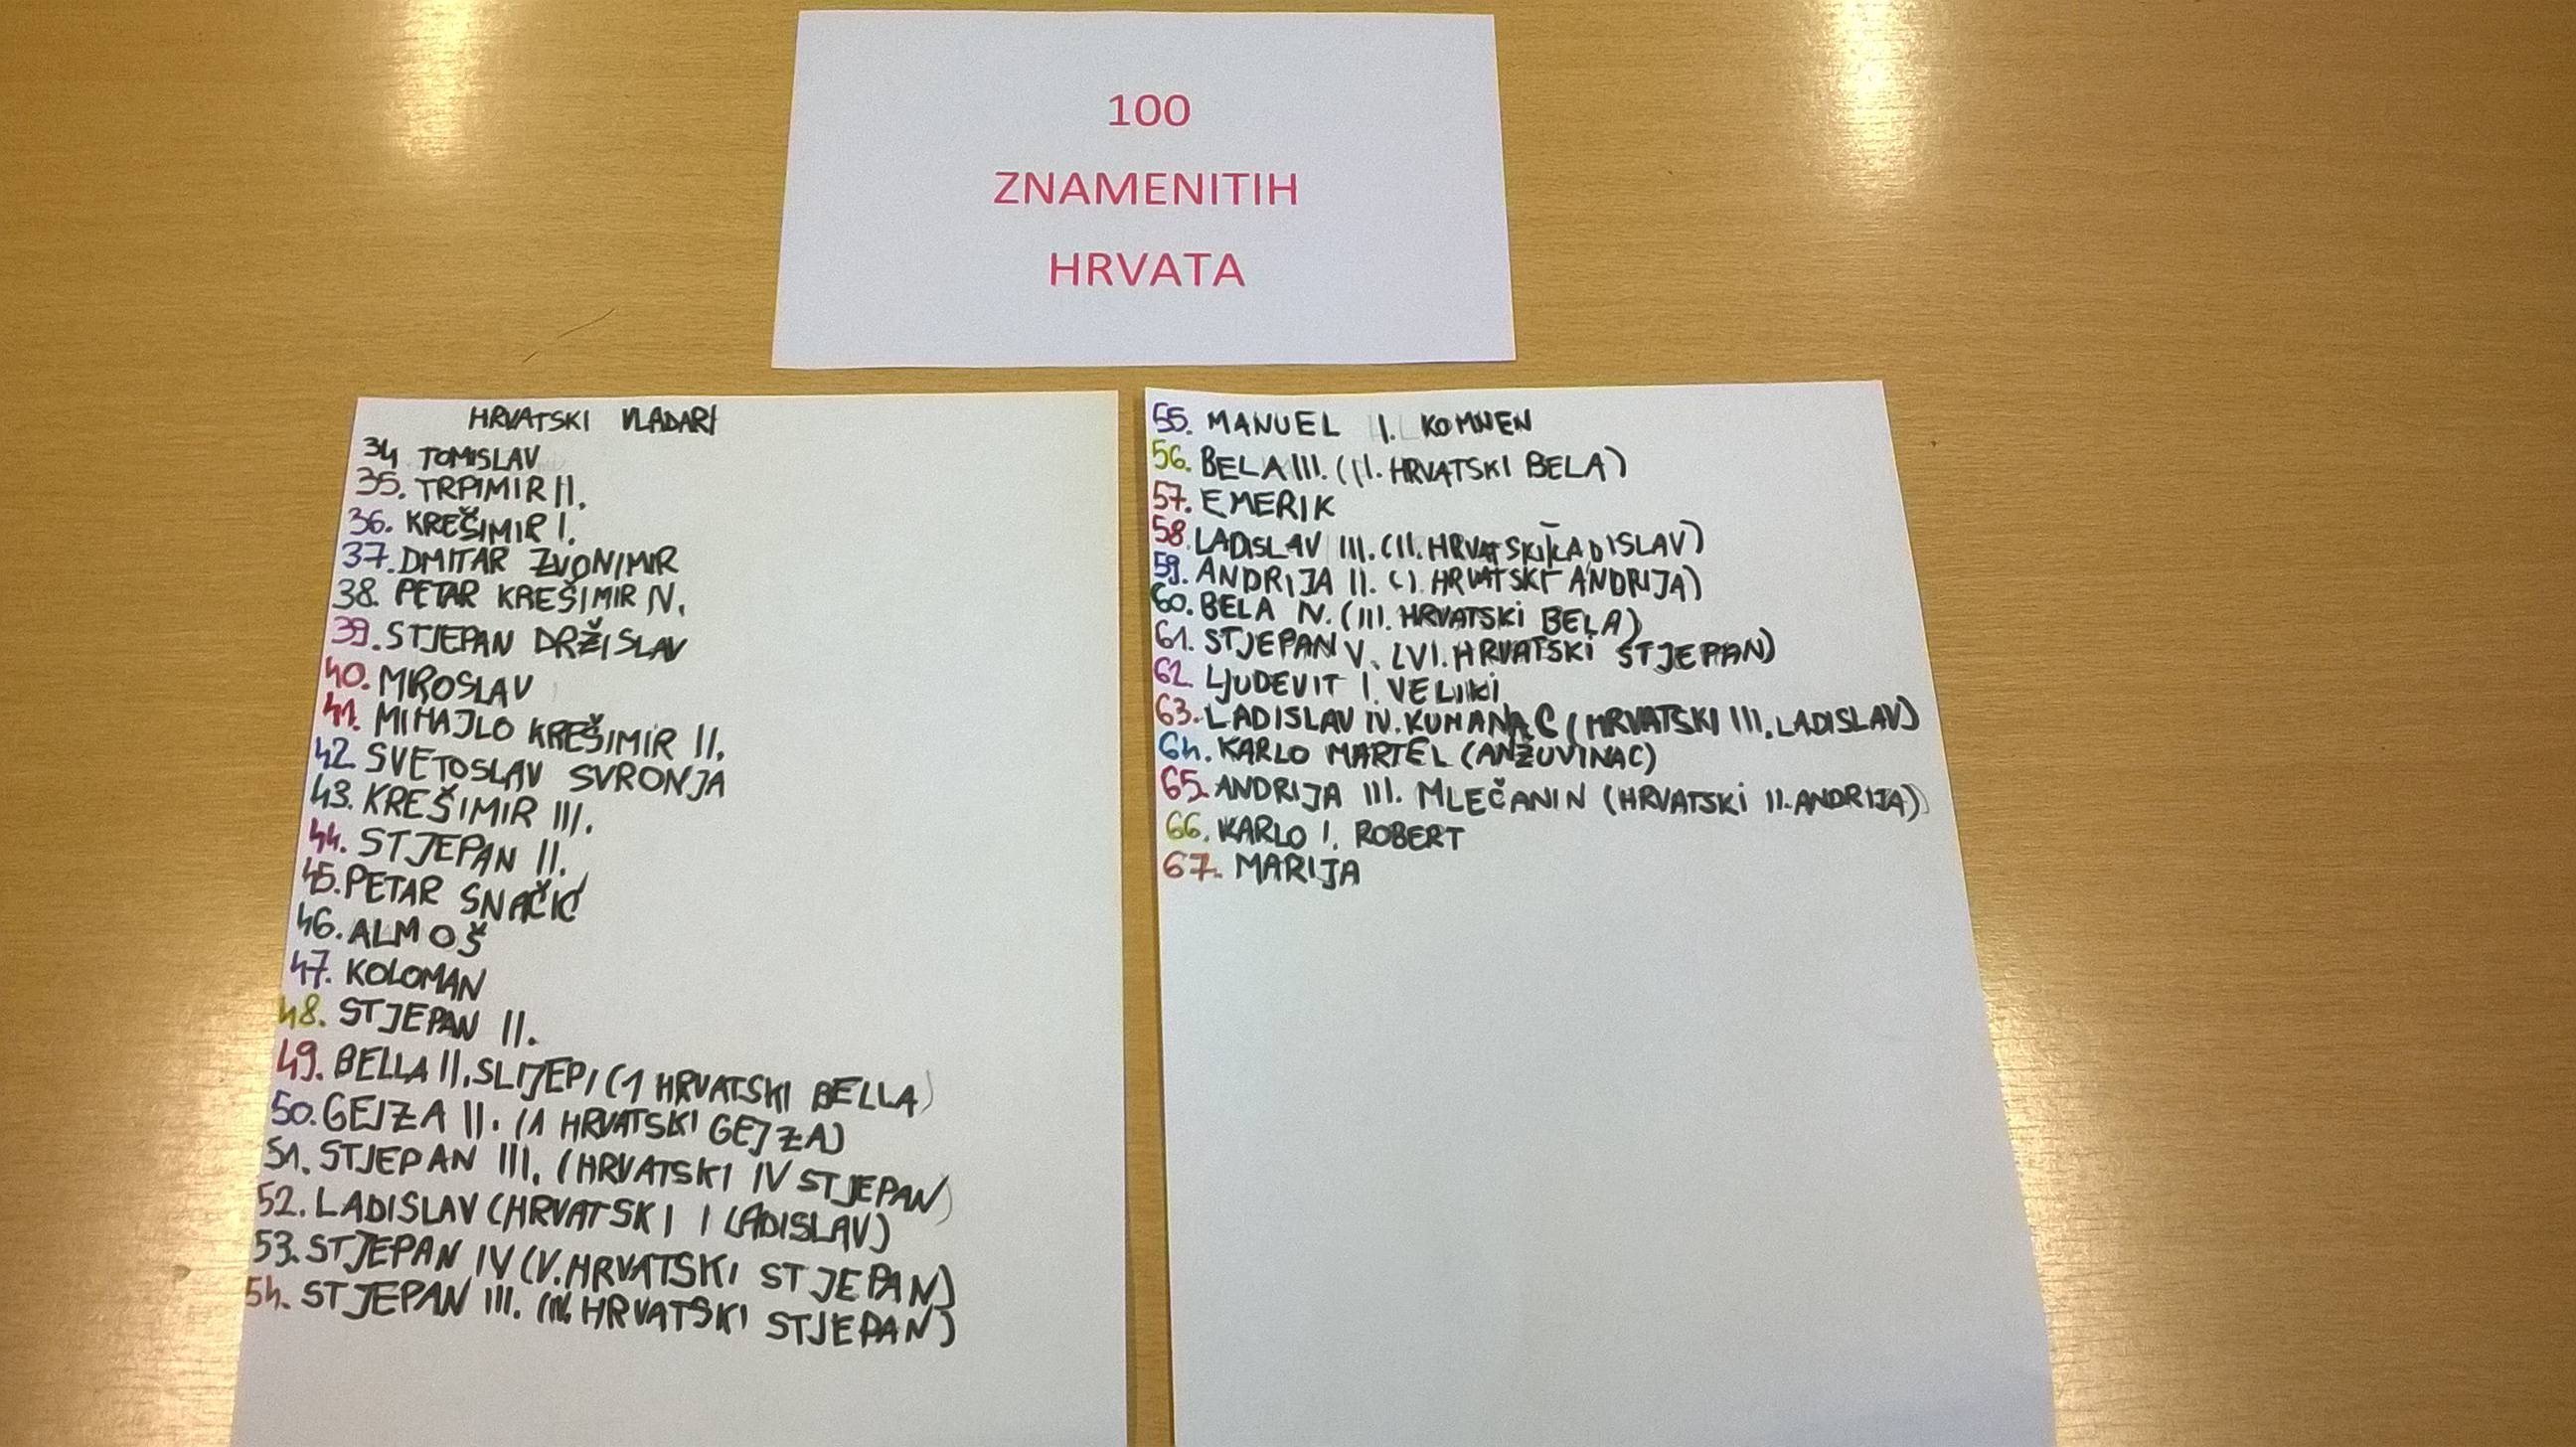 100
ZNAMENITIH
HRVATA
HRVATSKI VLADARI
34 TOMISLAV
35. TRPIMIR II.
36. KREŠIMIR I.
37. DMITAR ZVONIMIR
38. PETAR KREŠIMIR IV.
39. STJEPAN DRŽISLAV
40. MIROSLAV
41. MIHAJLO KREŠIMIR II.
42. SVETOSLAV SVRONJA
43. KREŠIMIR III.
44. STJEPAN II.
45. PETAR SNAČIĆ
46. ALMOŠ
47. KOLOMAN
48. STJEPAN II.
49. BELLA II. SLIJEPI (1 HRVATSKI BELLA)
50. GEJZA II. (1 HRVATSKI GEJZA)
51. STJEPAN III. (HRVATSKI IV STJEPAN)
52. LADISLAV (HRVATSKI I LADISLAV)
53. STJEPAN IV (V. HRVATSKI STJEPAN)
54. STJEPAN III. (IV. HRVATSKI STJEPAN)
55. MANUEL I. KOMNEN
56. BELA III. (II. HRVATSKI BELA)
57. EMERIK
58. LADISLAV III. (II. HRVATSKI LADISLAV)
59. ANDRIJA II. (I. HRVATSKI ANDRIJA)
60. BELA IV. (III. HRVATSKI BELA)
61. STJEPAN V. (VI. HRVATSKI STJEPAN)
62. LJUDEVIT I. VELIKI
63. LADISLAV IV. KUMANAC (HRVATSKI III. LADISLAV)
64. KARLO MARTEL (ANŽUVINAC)
65. ANDRIJA III. MLEČANIN (HRVATSKI II. ANDRIJA)
66. KARLO I. ROBERT
67. MARIJA